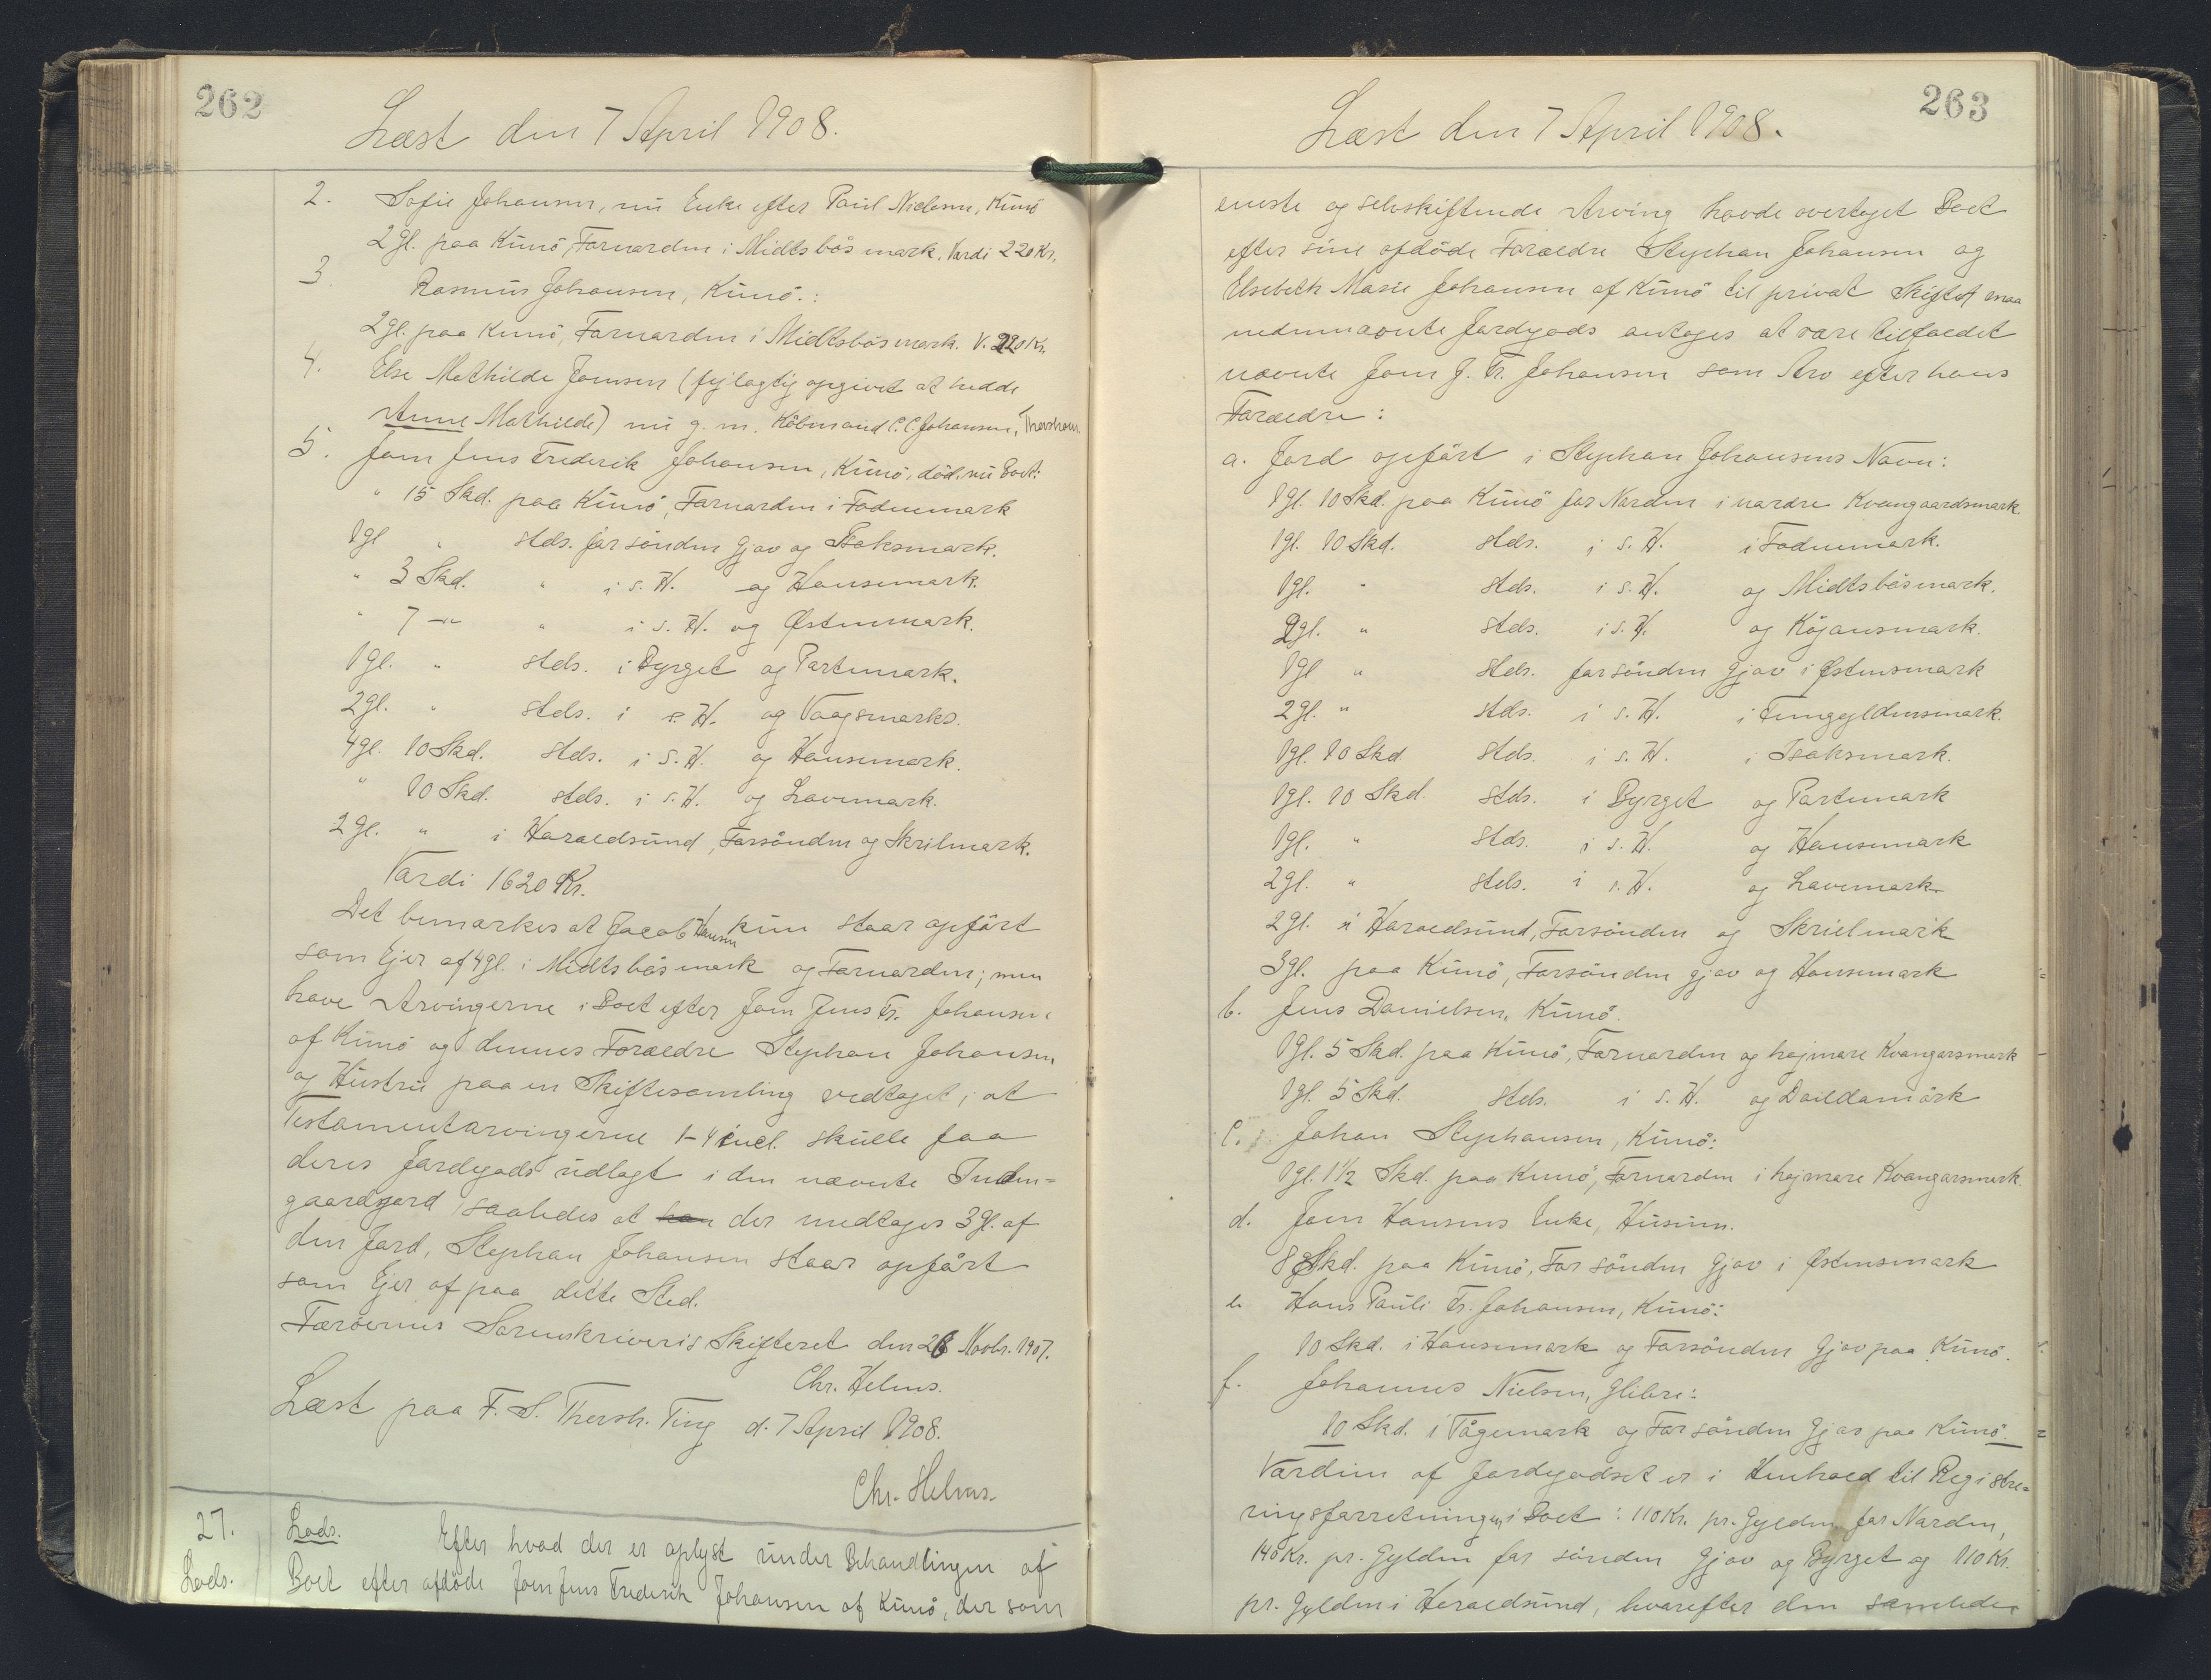 262
Læst den 7 April 1908.
2. Sofie Johansen, nu Enke efter Paul Nielsen, Kunö
2 gl. paa Kunö, Fornorden i Midtsbös mark. Værdi 220 Kr.
3. Rasmus Johansen, Kunö.:
2 gl. paa Kunö, Fornorden i Midtsbösmark. V. 220 Kr.
4. Else Mathilde Joensen (fejlagtig opgivet at hedde
Anne Mathilde) nu g. m. Köbmand C. C. Johansen, Thorshavn
5. Joen Jens Frederik Johansen, Kunö, död, nu Boet:
" 15 Skd. paa Kunö, Fornorden i Fodnemark
1 gl " steds. for sönden Gjov og Isaksmark.
" 3 Skd. " i s. H. og Hansemark.
" 7 —"— " i s. H. og Østenmark.
1 gl. " steds. i Byrget og Partemark.
2 gl. " steds. i s. H. og Vaagsmarks.
4 gl. 10 Skd. steds. i s. H. og Hansemark.
" 10 Skd. steds. i s. H. og Lavemark.
2 gl. " i Haraldsund, Forsönden og Skrilmark.
Værdi 1620 Kr.
Det bemærkes at Jacob Hansen kun staar opfört
som Ejer af 4 gl. i Midtsbösmark og Fornorden; men
have Arvingerne i Boet efter Joen Jens Fr. Johansen
af Kunö og dennes Forældre Stephan Johansen
og Hustru paa en Skiftesamling vedtaget, at
Testamentarvingerne 1-4 incl. skulle faa
deres Jordegods udlagt i den nævnte Inden-
gaardsjord saaledes at han der medtages 3 gl. af
den Jord, Stephan Johansen staar opfört
som Ejer af paa dette Sted.
Færöernes Sorenskriveris Skifteret den 26 Novbr. 1907.
Chr. Helms.
Læst paa F. S. Thorsh. Ting d. 7 April 1908.
Chr. Helms.
27. Lods. Efter hvad der er oplyst under Behandlingen af
Lods. Boet efter afdöde Joen Jens Frederik Johansen af Kunö, der som
263
Læst den 7 April 1908.
eneste og selvskiftende Arving havde overtaget Boet
efter sine afdöde Forældre Stephan Johansen og
Elsebeth Marie Johansen af Kunö til privat Skifte maa
nedennævnte Jordegods antages at være tilfaldet
nævnte Joen J. Fr. Johansen som Arv efter hans
Forældre:
a. Jord opfört i Stephan Johansens Navn:
1 gl. 10 Skd. paa Kunö for Norden i nordre Kvangaardsmark.
1 gl. 10 Skd. steds. i s. H. i Fodnemark.
1 gl. " steds. i s. H. og Midtsbösmark.
2 gl. " steds. i s. H. og Köjansmark.
1 gl " steds. for sönden Gjov i Østensmark
2 gl. " steds. i s. H. i Femgyldensmark.
1 gl. 10 Skd steds. i s. H. i Isaksmark.
1 gl. 10 Skd. steds. i Byrget og Partemark
1 gl. " steds. i s. H. og Hansemark
2 gl. " steds. i s. H. og Lavemark
2 gl. i Haraldsund, Forsönden og Skrielmark
3 gl. paa Kunö, Forsönden gjov og Hansemark
b. Jens Danielsen, Kunö.
1 gl. 5 Skd. paa Kunö, Fornorden og højmare Kvangarsmark
1 gl. 5 Skd. steds. i s. H. og Daildamörk
c. Johan Stephansen, Kunö:
1 gl. 1 1/2 Skd. paa Kunö, Fornorden i højmare Kvangarsmark.
d. Joen Hansens Enke, Husum.
8 Skd. paa Kunö, For sönden Gjov i Østensmark
e. Hans Pauli Fr. Johansen, Kunö:
10 Skd. i Hansemark og Forsönden Gjov paa Kunö.
f. Johannes Nielsen, Glibre:
10 Skd. i Tågemark og For sönden Gjov paa Kunö.
Værdien af Jordegodset er i Henhold til Registre-
ringsforretningen i Boet: 110 Kr. pr. Gylden for Norden,
140 Kr. pr. Gylden for sönden Gjov og Byrget og 110 Kr.
pr. Gylden i Haraldsund, hvorefter den samlede